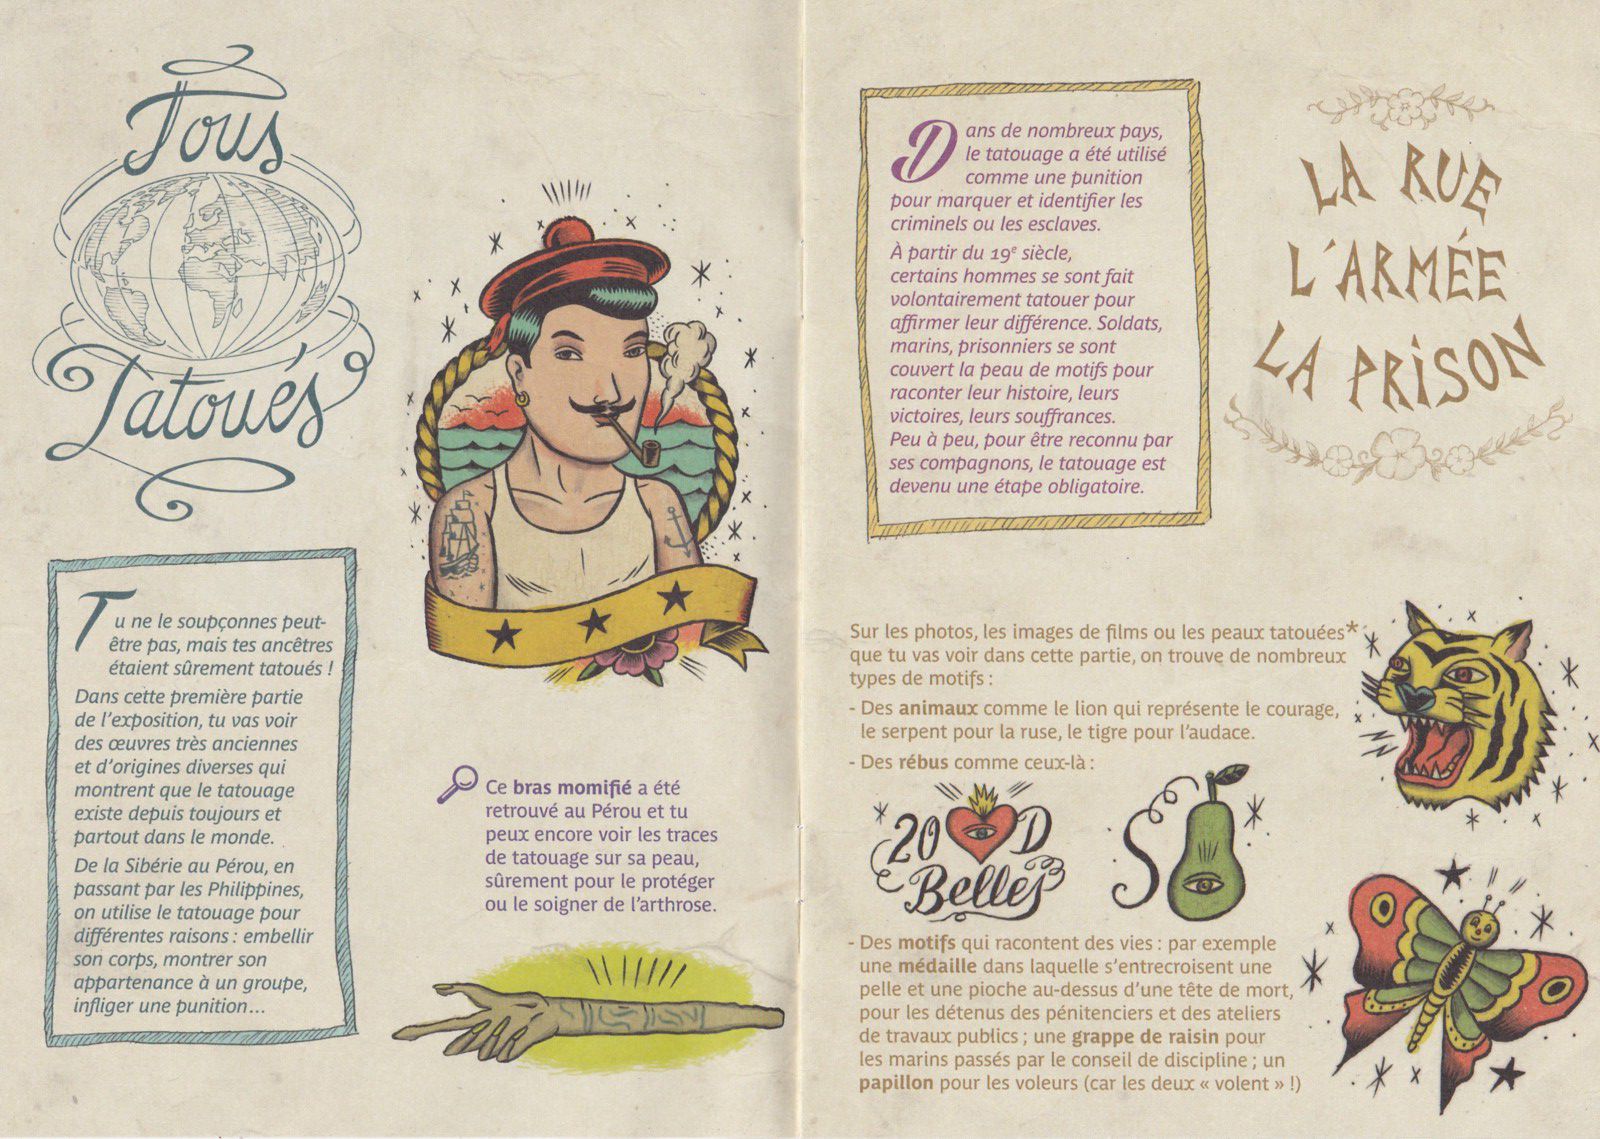 Tous
Tatoués
Tu ne le soupçonnes peut-
être pas, mais tes ancêtres
étaient sûrement tatoués !
Dans cette première partie
de l'exposition, tu vas voir
des œuvres très anciennes
et d'origines diverses qui
montrent que le tatouage
existe depuis toujours et
partout dans le monde.
De la Sibérie au Pérou, en
passant par les Philippines,
on utilise le tatouage pour
différentes raisons : embellir
son corps, montrer son
appartenance à un groupe,
infliger une punition...
Ce bras momifié a été
retrouvé au Pérou et tu
peux encore voir les traces
de tatouage sur sa peau,
sûrement pour le protéger
ou le soigner de l'arthrose.
Dans de nombreux pays,
le tatouage a été utilisé
comme une punition
pour marquer et identifier les
criminels ou les esclaves.
À partir du 19e siècle,
certains hommes se sont fait
volontairement tatouer pour
affirmer leur différence. Soldats,
marins, prisonniers se sont
couvert la peau de motifs pour
raconter leur histoire, leurs
victoires, leurs souffrances.
Peu à peu, pour être reconnu par
ses compagnons, le tatouage est
devenu une étape obligatoire.
LA RUE
L'ARMÉE
LA PRiSON
Sur les photos, les images de films ou les peaux tatouées*
que tu vas voir dans cette partie, on trouve de nombreux
types de motifs :
- Des animaux comme le lion qui représente le courage,
le serpent pour la ruse, le tigre pour l'audace.
- Des rébus comme ceux-là :
20 D
Belles
S
- Des motifs qui racontent des vies : par exemple
une médaille dans laquelle s'entrecroisent une
pelle et une pioche au-dessus d'une tête de mort,
pour les détenus des pénitenciers et des ateliers
de travaux publics ; une grappe de raisin pour
les marins passés par le conseil de discipline ; un
papillon pour les voleurs (car les deux « volent » !)